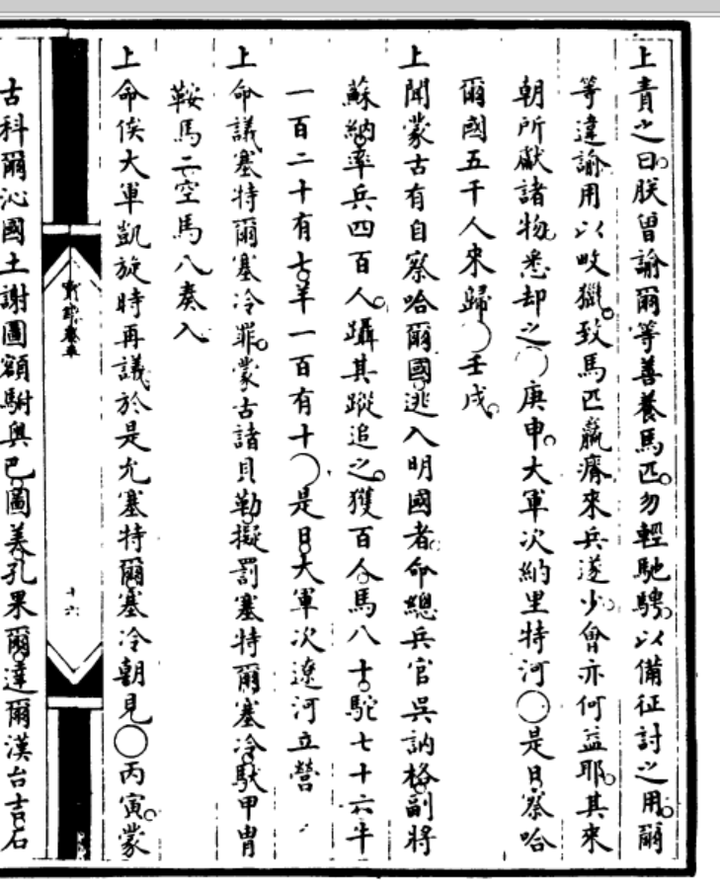 上責之曰朕曾諭爾等善養馬匹勿輕馳騁以備征討之用爾
等違諭用以畋獵致馬匹羸瘠來兵遂少會亦何益耶其來
朝所獻諸物悉却之○庚申大軍次納里特河○是日察哈
爾國五千人來歸○壬戌
上聞蒙古有自察哈爾國逃入明國者命總兵官吳訥格副將
蘇納率兵四百人躡其蹤追之獲百人馬八十駝七十六牛
一百二十有七羊一百有十○是日大軍次遼河立營
上命議塞特爾塞冷罪蒙古諸貝勒擬罰塞特爾塞冷馱甲胄
鞍馬二空馬八奏入
上命俟大軍凱旋時再議於是允塞特爾塞冷朝見○丙寅蒙
十六
古科爾沁國土謝圖額駙奧巴圖美孔果爾達爾漢台吉石